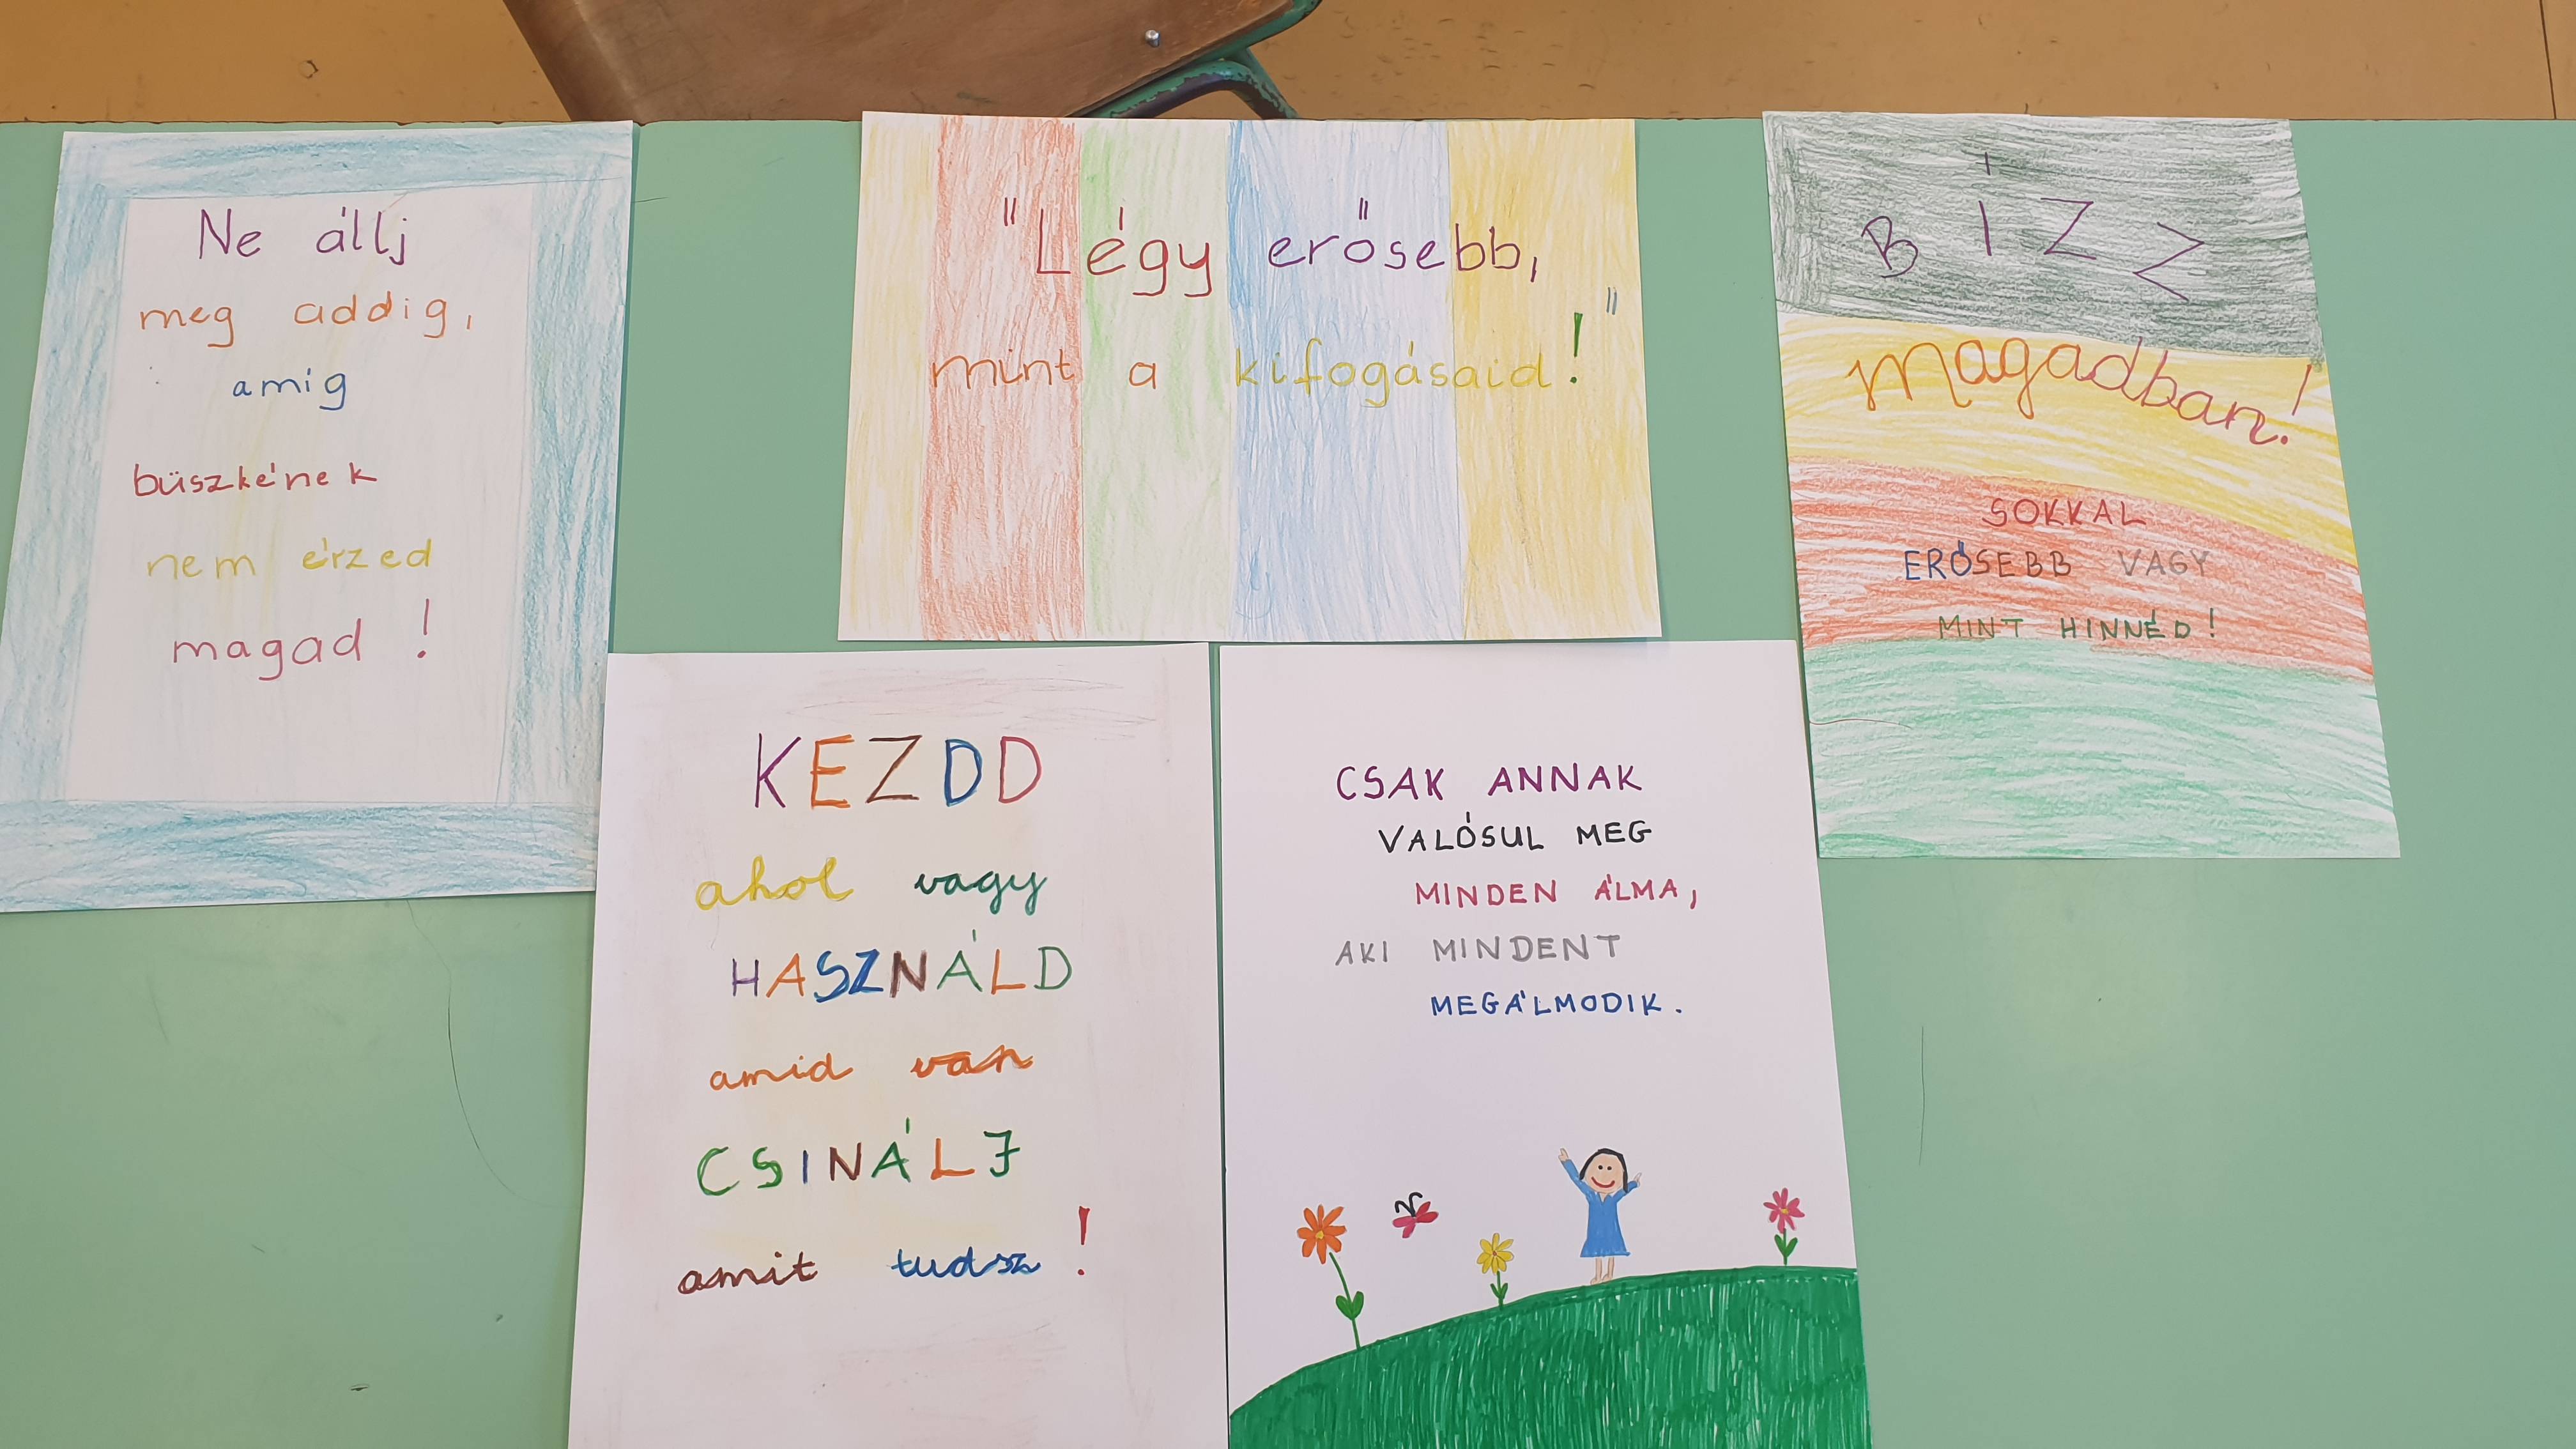 Ne állj
meg addig,
amíg
büszkének
nem érzed
magad !
"Légy erősebb,
mint a kifogásaid!"
BÍZZ
magadban!
SOKKAL
ERŐSEBB VAGY
MINT HINNÉD!
KEZDD
ahol vagy
HASZNÁLD
amid van
CSINÁLJ
amit tudsz!
CSAK ANNAK
VALÓSUL MEG
MINDEN ÁLMA,
AKI MINDENT
MEGÁLMODIK.